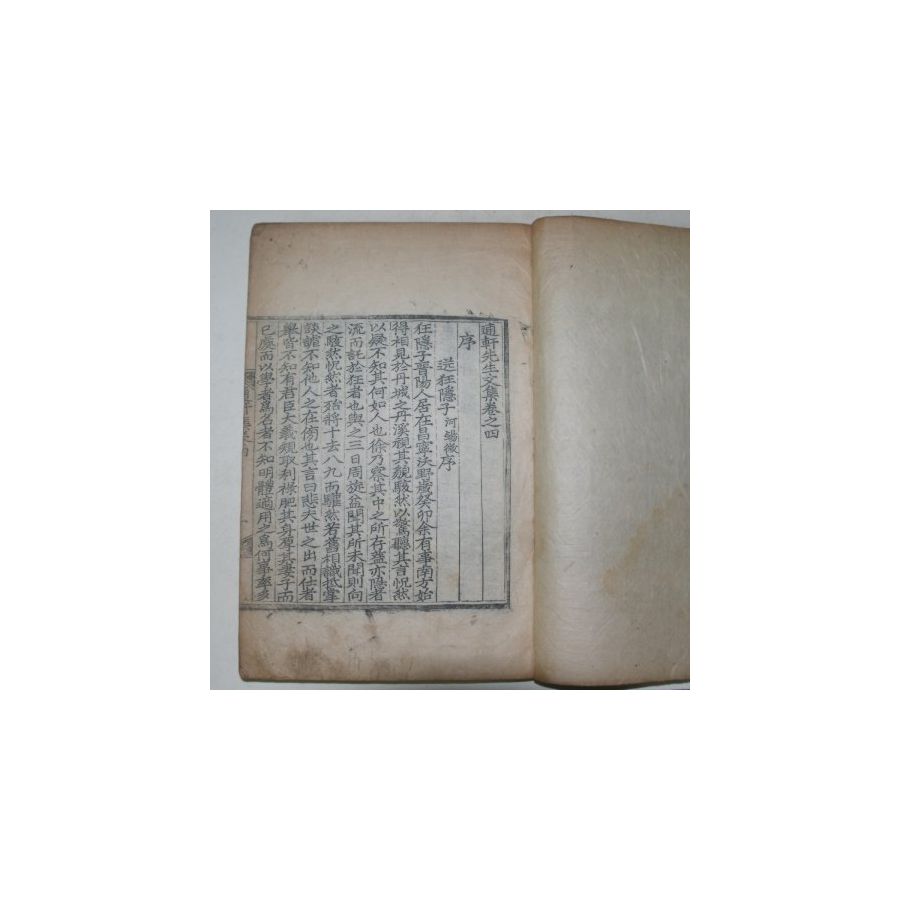 逌軒先生文集卷之四
序
送狂隱子河 徵序
狂隱子晉陽人居在昌寧沃野歲癸卯余有事南方始
得相見於丹城之丹溪視其貌駭然以驚聽其言怳然
以疑不知其何如人也徐乃察其中之所存蓋亦隱者
流而託於狂者也與之三日周旋益聞其所未聞則向
之駭然怳然者殆將十去八九而驩然若舊相識抵掌
談謔不知他人之在傍也其言曰悲夫世之出而仕者
擧皆不知有君臣大義規取利祿肥其身孽其妻子而
已處而以學者爲名者不知明體適用之爲何事率多